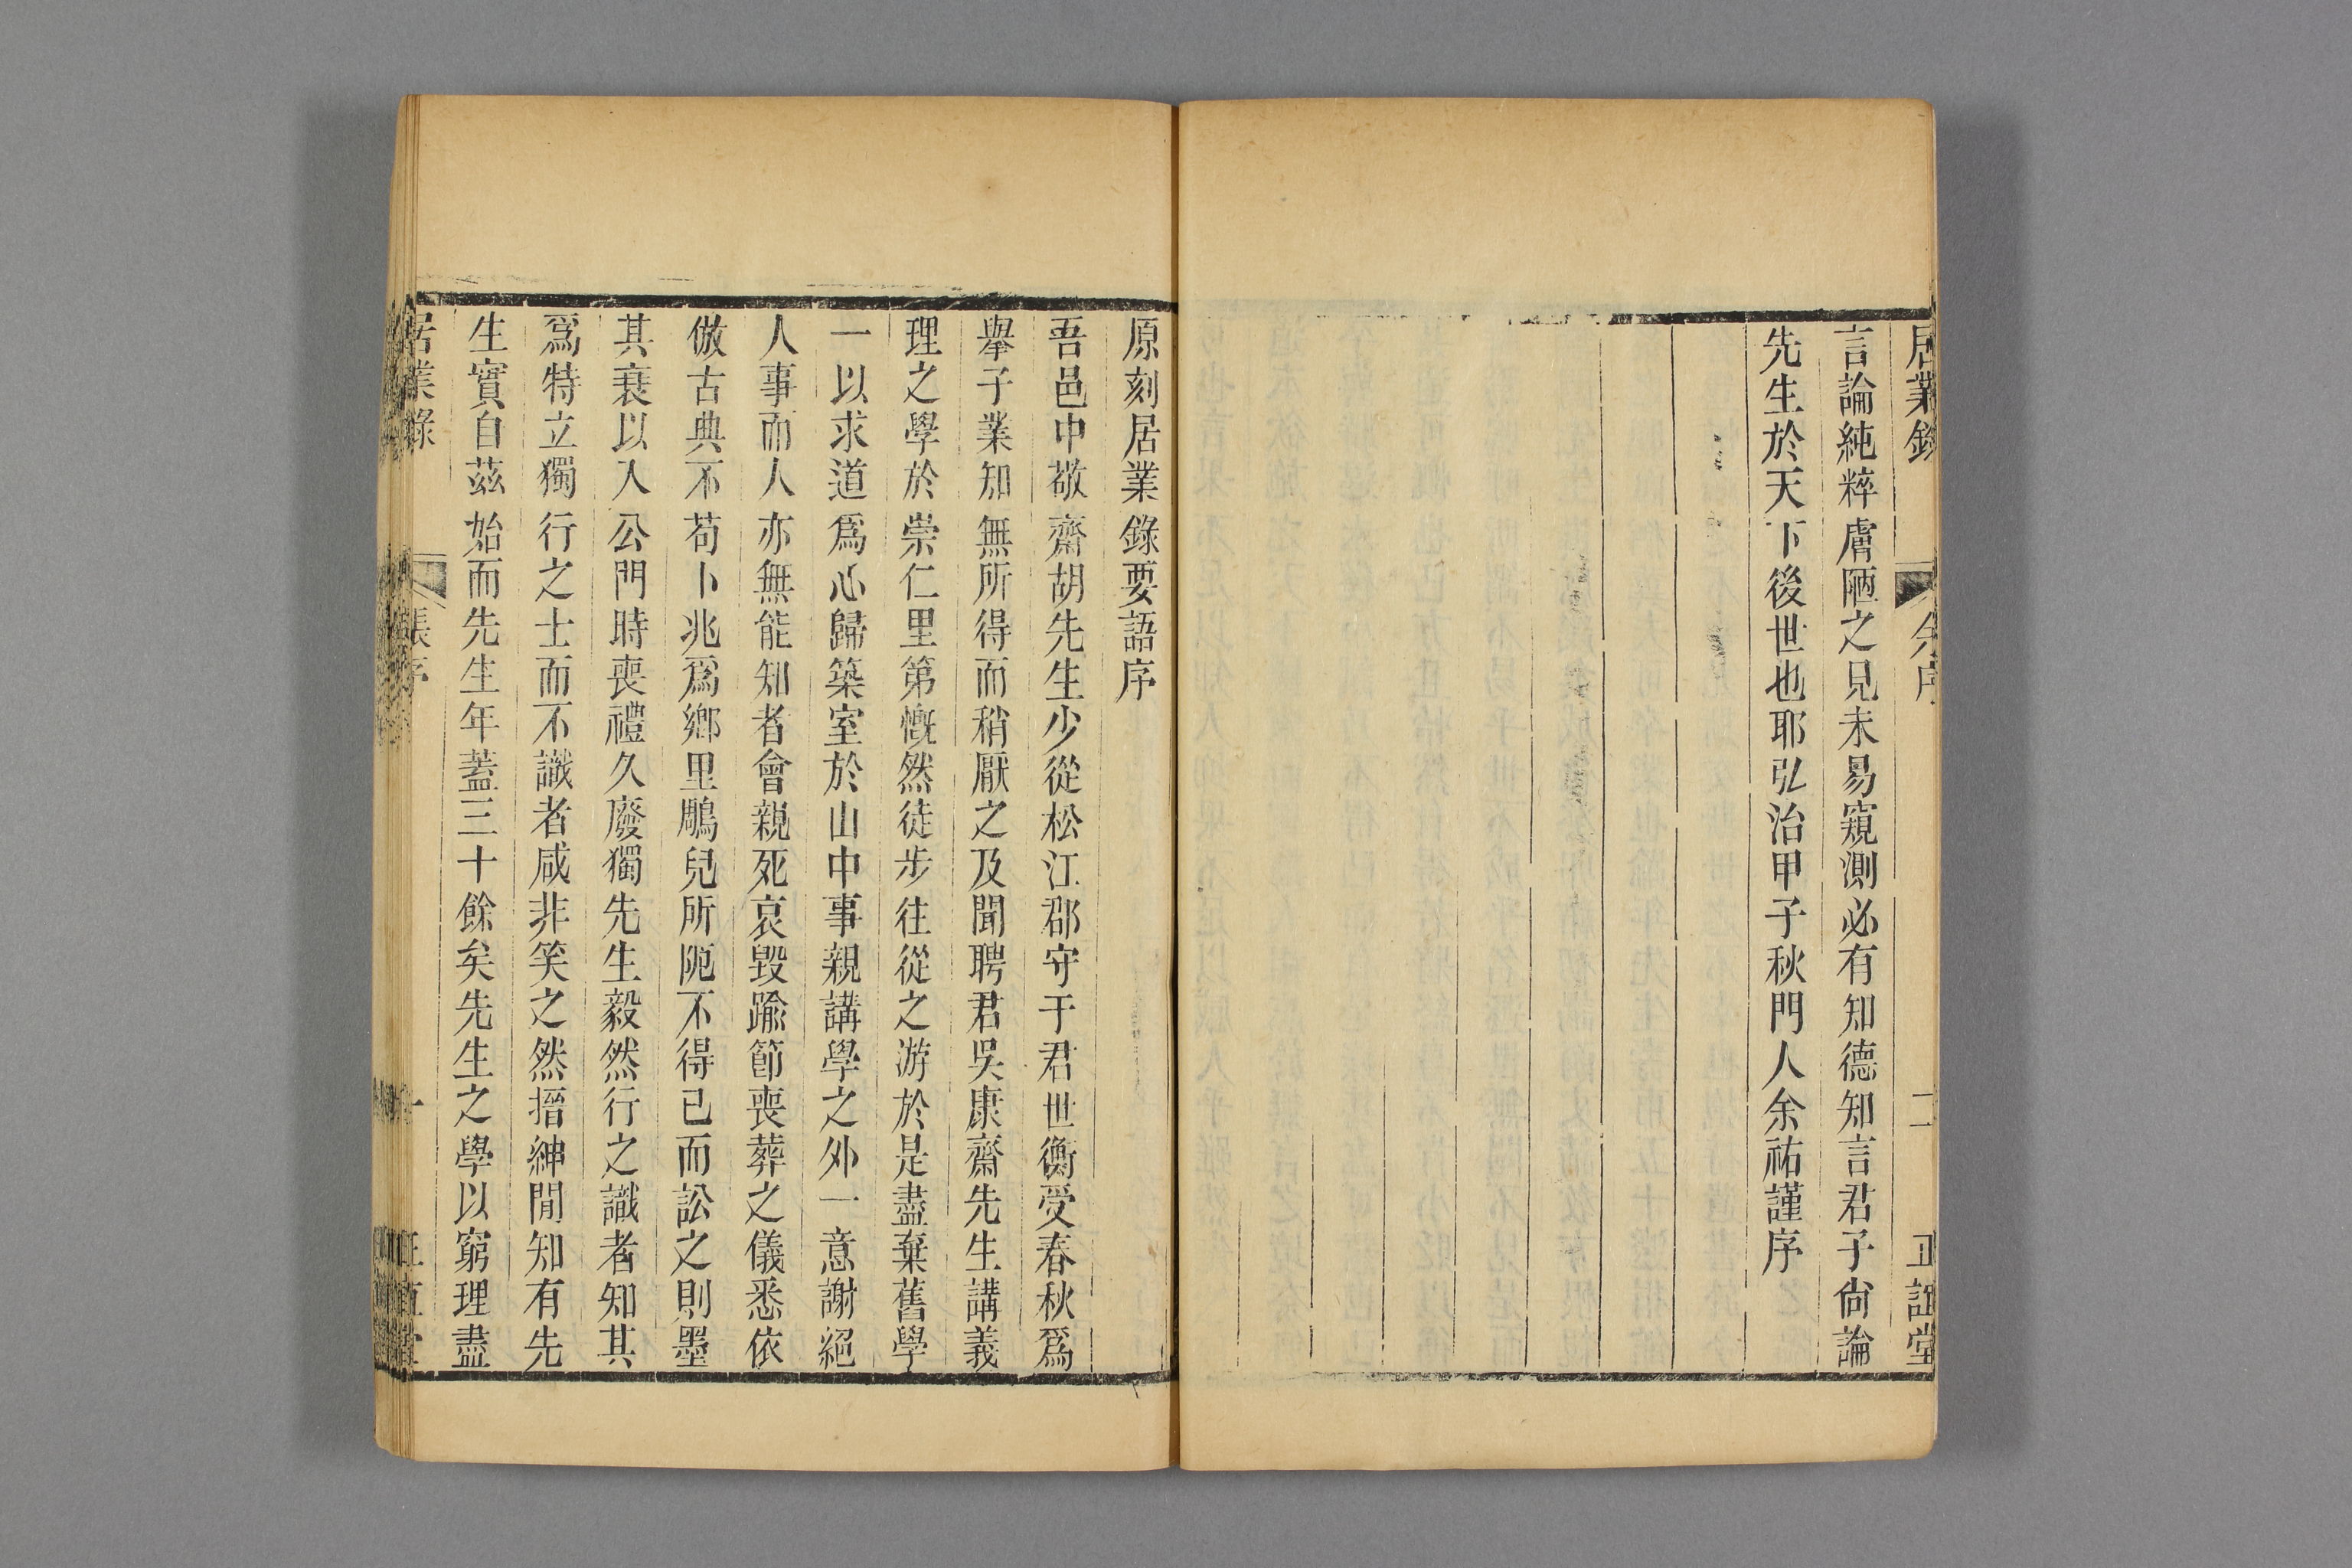 居業錄 余序 二 正誼堂
言論純粹膚陋之見未易窺測必有知德知言君子尙論
先生於天下後世也耶弘治甲子秋門人余祐謹序
原刻居業錄要語序
吾邑中敬齋胡先生少從松江郡守于君世衡受春秋爲
舉子業知無所得而稍厭之及聞聘君吳康齋先生講義
理之學於崇仁里第慨然徒步往從之游於是盡棄舊學
一以求道爲心歸築室於山中事親講學之外一意謝絕
人事而人亦無能知者會親死哀毀踰節喪葬之儀悉依
倣古典不苟卜兆爲鄉里鵰兒所阨不得已而訟之則墨
其衰以入公門時喪禮久廢獨先生毅然行之識者知其
爲特立獨行之士而不識者咸非笑之然搢紳閒知有先
生實自茲始而先生年蓋三十餘矣先生之學以窮理盡
居業錄 張序 一 正誼堂